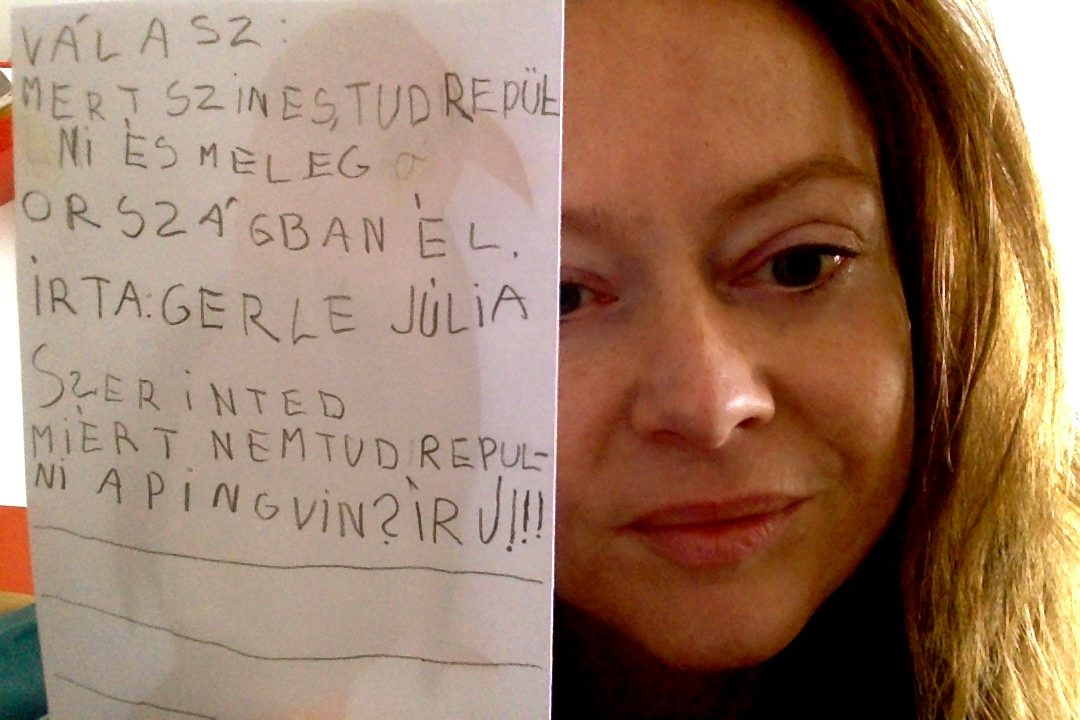 VÁLASZ:
MERT SZINES,TUD REPÜL
NI ÈS MELEG
ORSZÁGBAN ÈL.
IRTA:GERLE JÚLIA
SZERINTED
MIÈRT NEMTUD REPUL-
NI A PINGVIN?ÌRJ!!!